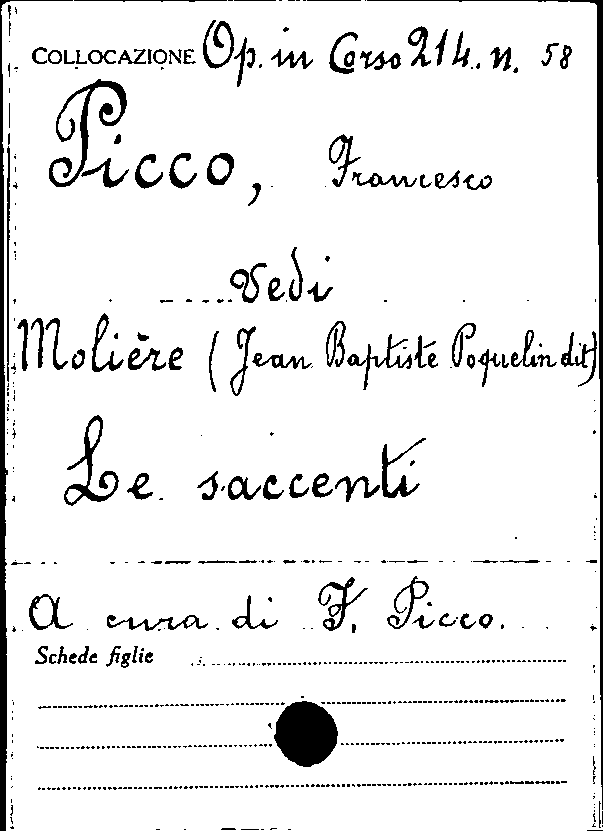 COLLOCAZIONE Op. in Corso 214. n. 58
Picco, Francesco
Vedi
Molière (Jean Baptiste Poquelin dit)
Le saccenti
A cura di F. Picco.
Schede figlie